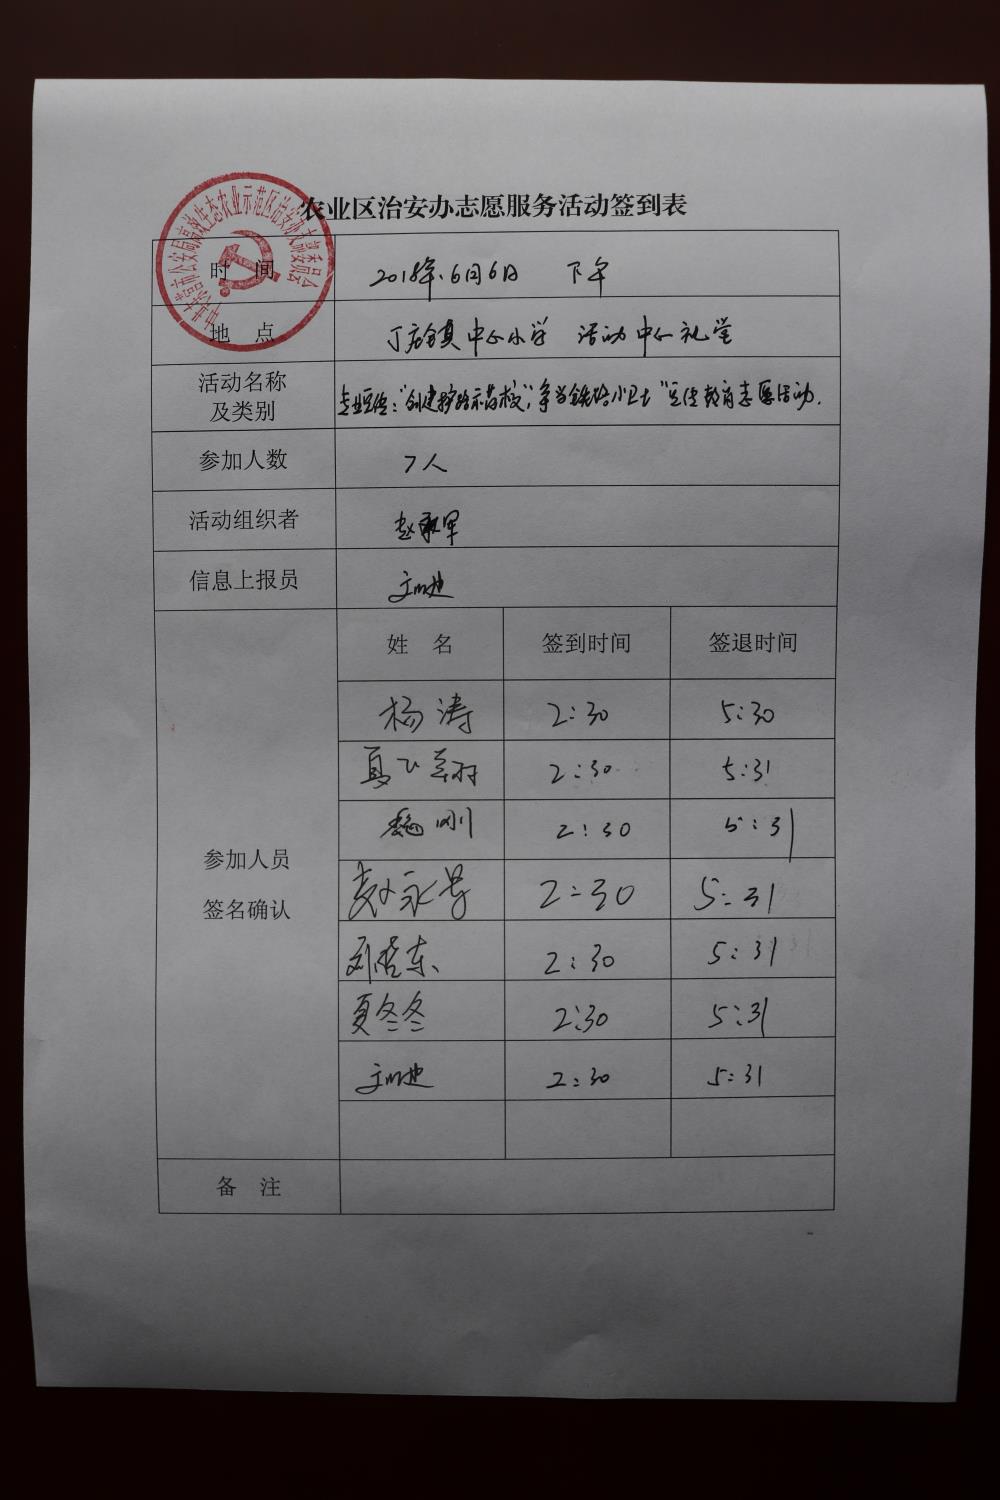 农业区治安办志愿服务活动签到表
时 间 2018年.6月6日 下午
地 点 丁庄镇中心小学 活动中心礼堂
活动名称
及类别 专业宣传:"创建护路示范校,争当铁路小卫士"宣传教育志愿活动.
参加人数 7人
活动组织者 赵永军
信息上报员
参加人员
签名确认
姓 名 签到时间 签退时间
杨涛 2:30 5:30
夏飞翔 2:30 5:31
魏刚 2:30 5:31
赵永军 2:30 5:31
刘营东 2:30 5:31
夏冬冬 2:30 5:31
2:30 5:31
备 注